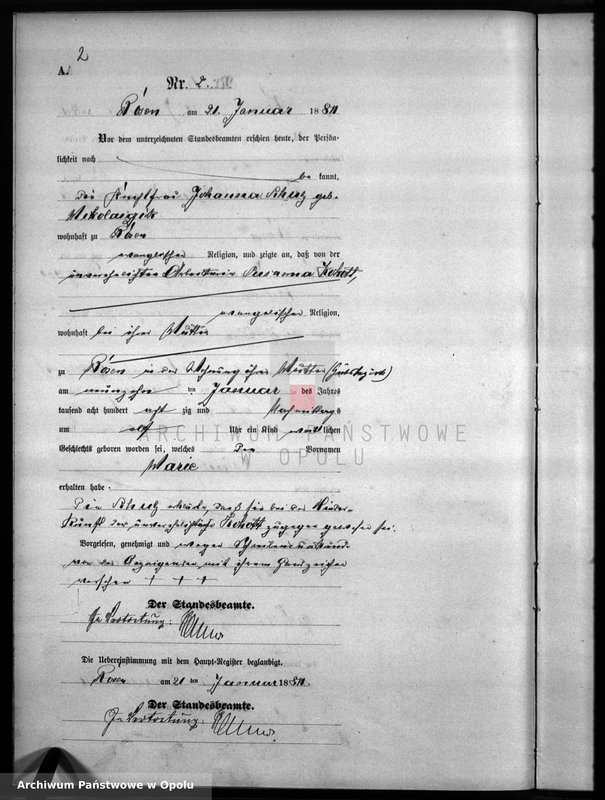 2
A.
Nr. 2.
Rosen am 21. Januar 1880
Vor dem unterzeichneten Standesbeamten erschien heute, der Persön-
lichkeit nach
be kannt,
die Johanna geb.
wohnhaft zu Rosen
evangelischer Religion, und zeigte an, daß von der
unverehelichten Arbeiterin Susanna
evangelischer Religion,
wohnhaft bei ihrer Mutter
zu Rosen in der Wohnung ihrer Mutter
am neunzehn ten Januar des Jahres
tausend acht hundert acht zig und Nachmittags
um elf Uhr ein Kind weiblichen
Geschlechts geboren worden sei, welches den Vornamen
Marie
erhalten habe.
Die erklärte, daß sie bei der Nieder-
kunft der unverehelichten zugegen gewesen sei.
Vorgelesen, genehmigt und wegen Schreibensunkunde
von der Anzeigenden mit ihrem Handzeichen
versehen + + +
Der Standesbeamte.
In Vertretung:
Die Uebereinstimmung mit dem Haupt-Register beglaubigt.
Rosen am 21 ten Januar 1880.
Der Standesbeamte.
In Vertretung:
ARCHIWUM PAŃSTWOWE
W OPOLU
Archiwum Państwowe w Opolu